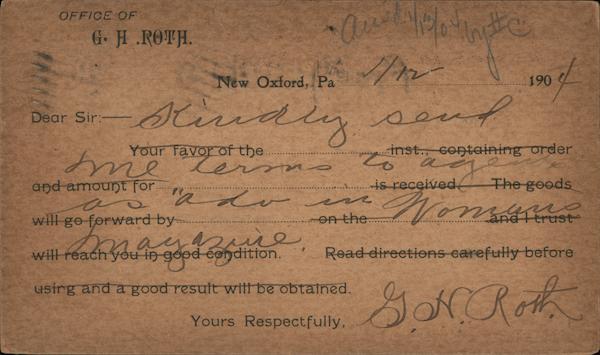 OFFICE OF
G. H. ROTH.
New Oxford, Pa 1/12 1904
Dear Sir:— Kindly send
Your favor of the inst., containing order
me terms to agents
and amount for is received. The goods
as "adv in Woman's
will go forward by on the and I trust
Magazine.
will reach you in good condition. Read directions carefully before
using and a good result will be obtained.
Yours Respectfully, G. H. Roth.